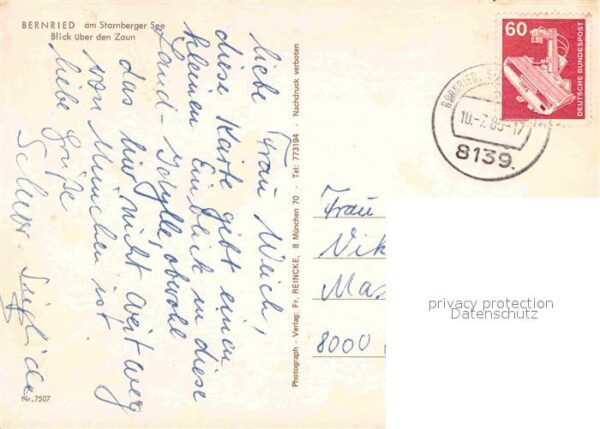 BERNRIED am Starnberger See
Blick über den Zaun
liebe Frau Weich,
diese Karte gibt einen
kleinen Einblick in diese
Land-Idylle, obwohl
das hier nicht weit weg
von München ist
liebe Grüße
Nr. 7507
Photograph - Verlag: Fr. REINCKE, 8 München 70 - Tel: 773194 Nachdruck verboten
60
DEUTSCHE BUNDESPOST
BERNRIED,
8139
Frau
Vik
Mas
8000
privacy protection
Datenschutz